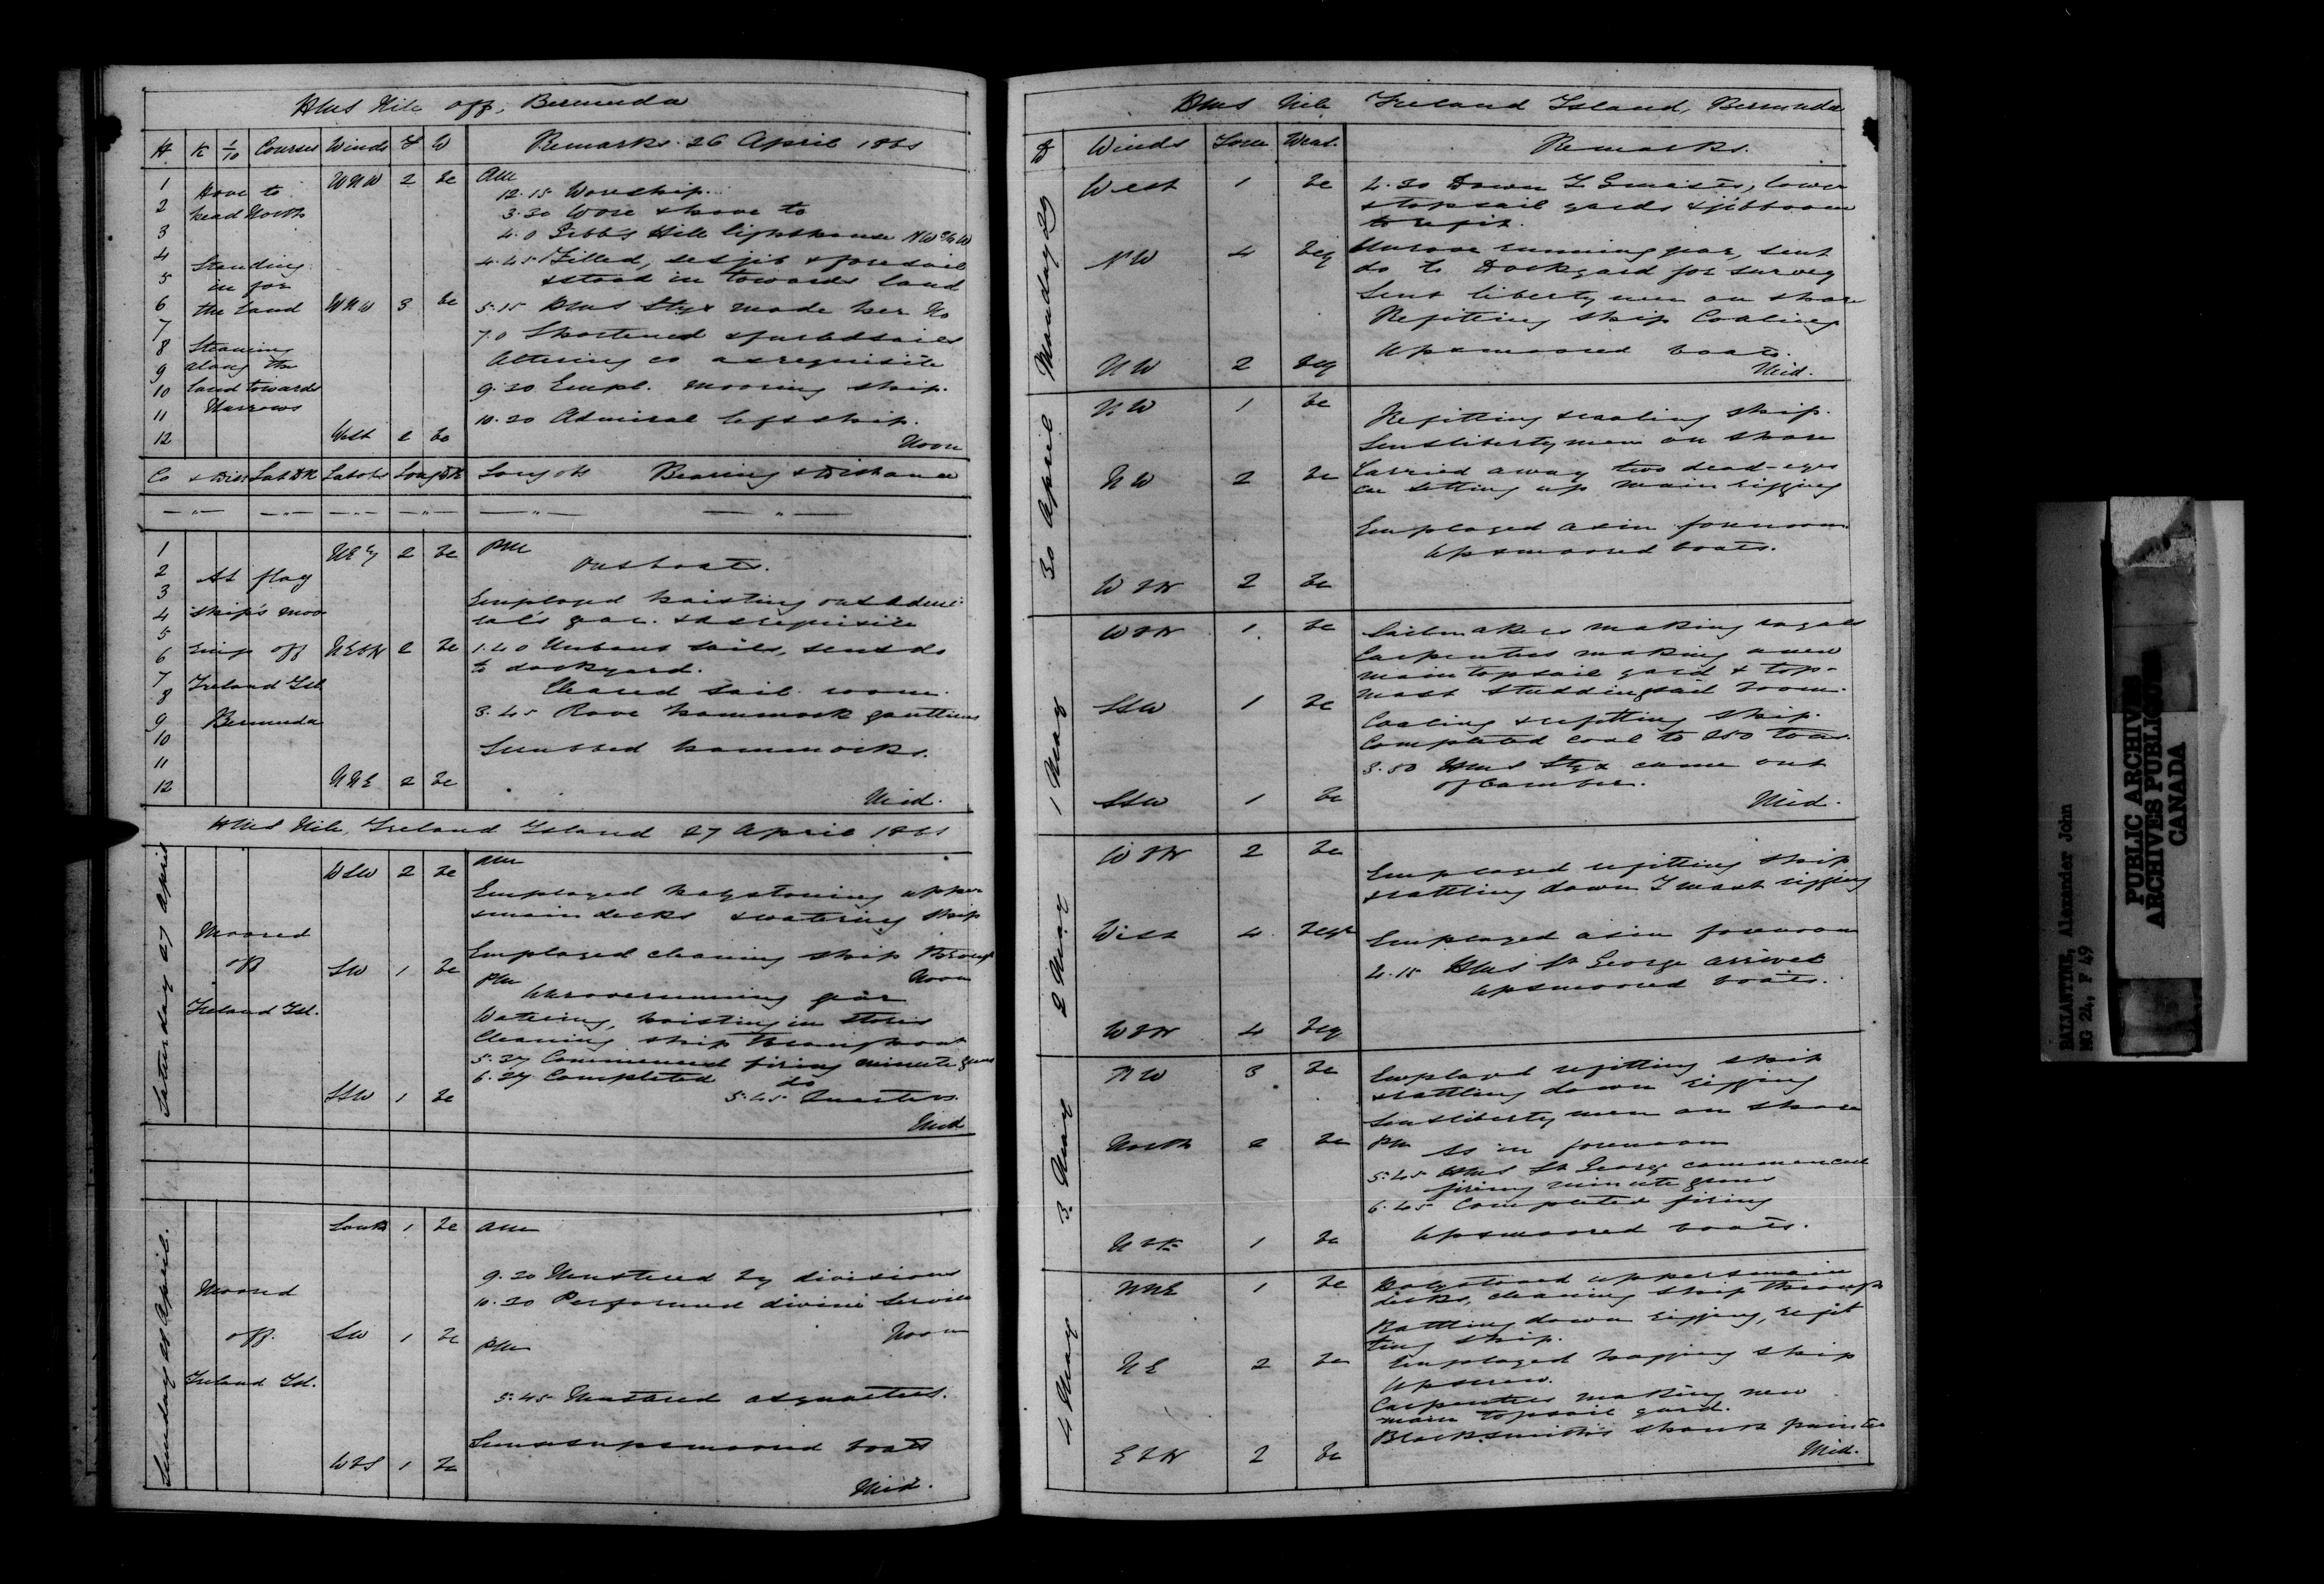 HMS Nile off, Bermuda
H K 1/10 Courses Winds F W Remarks 26 April 1861
AM
1 Hove to WNW 2 bc
12.15 Wore ship.
2 head North
3.30 Wore & hove to
3
4.0 Gibb's Hill lighthouse NW
4 Standing
4.45 Filled, set jib & foresail
5 in for
& stood in towards land
6 the land WNW 3 bc 5.15 HMS Styx made her No
7
7.0 Shortened & furled sails
8 Steaming
Altering co as requisite
9 along the
10 land towards 9.30 Empl. mooring ship.
11 Narrows
10.30 Admiral left ship.
12 West 2 bc Noon
Co & Dis Lat DR Lat obs Long DR Long obs Bearing & Distance
1 2 bc PM
Out boats.
2 At flag
3 Employed hoisting out Admi-
4 ship's moo
ral's gear. & as requisite
5
6 ring off NEbN 2 bc 1.40 Unbent sails, sent do
to dockyard.
7 Ireland Isl
8 Cleared sail room.
9 Bermuda 3.45 Rove hammock gantlines
10
Scrubbed hammocks.
11
12 NNE 2 bc
Mid.
HMS Nile, Ireland Island 27 April 1861
Saturday 27 April
WSW 2 bc AM
Employed holystoning upper
& main decks & watering ship
Moored
off
Ireland Isl.
SW 1 bc Employed cleaning ship through
PM Noon
Unrove running gear
Watering, hoisting in stores
Cleaning ship throughout
5.37 Commenced firing minute guns
6.37 Completed do
SSW 1 bc 5.45 Quarters.
Mid
Sunday 28 April.
South 1 bc AM
9.30 Mustered by divisions
Moored
10.30 Performed divine service
off. SW 1 bc Noon
PM
Ireland Isl.
5.45 Mustered at quarters.
Sunset up & moored boats
WbS 1 bc
Mid.
HMS Nile Ireland Island, Bermuda
D Winds Force Weat. Remarks.
Monday 29
West 1 bc 4.30 Down lower
& topsail yards & jibboom
to refit.
NW 4 bcq Unrove running gear, sent
do to Dockyard for survey
Sent liberty men on shore
Refitting ship Coaling
Up & moored boats.
NW 2 bcq Mid.
30 April
NW 1 bc
Refitting & coaling ship.
Sent liberty men on shore
NW 2 bc Carried away two dead-eyes
in setting up main rigging
Employed as in forenoon.
Up & moored boats.
WbN 2 bc
1 May
WbN 1 bc Sailmakers making royals
Carpenters making a new
main topsail yard & top-
mast studdingsail boom.
SSW 1 bc
Coaling & refitting ship.
Completed coal to 250 tons.
3.50 HMS Styx came out
of Camber.
SSW 1 bc Mid.
2 May
WbN 2 bc
Employed refitting ship
& rattling down F mast rigging
West 4 Employed as in forenoon
4.15 HMS St George arrived
Up & moored boats.
WbN 4 bcq
3. May
NW 3 bc Employed refitting ship
& rattling down rigging
Sent liberty men on shore
North 2 bc PM As in forenoon
5.45 HMS St George commenced
firing minute guns
6.45 Completed firing
Up & moored boats.
1 bc
4 May
NNE 1 bc Holystoned upper & main
decks, cleaning ship through
Rattling down rigging, refit
ting ship.
NE 2 bc Employed ship
Up screw.
Carpenters making new
main topsail yard.
Blacksmith's shank painter
EbN 2 bc Mid.
BALLANTINE, Alexander John
MG 24, F 49
PUBLIC ARCHIVES
ARCHIVES PUBLIQUES
CANADA